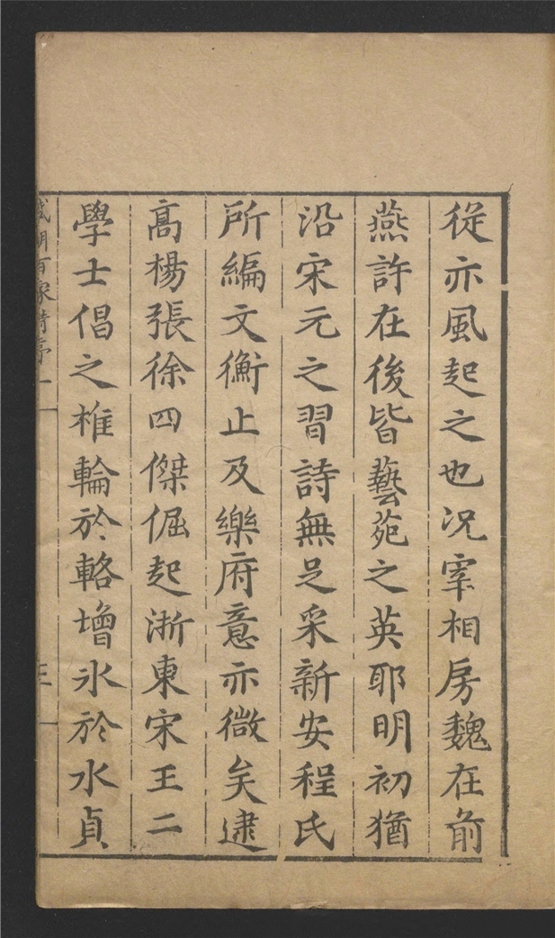 從亦風起之也况宰相房魏在前
燕許在後皆藝苑之英耶明初猶
沿宋元之習詩無足采新安程氏
所編文衡止及樂府意亦微矣逮
高楊張徐四傑倔起浙東宋王二
學士倡之椎輪於輅增冰於水貞
盛明百家詩序